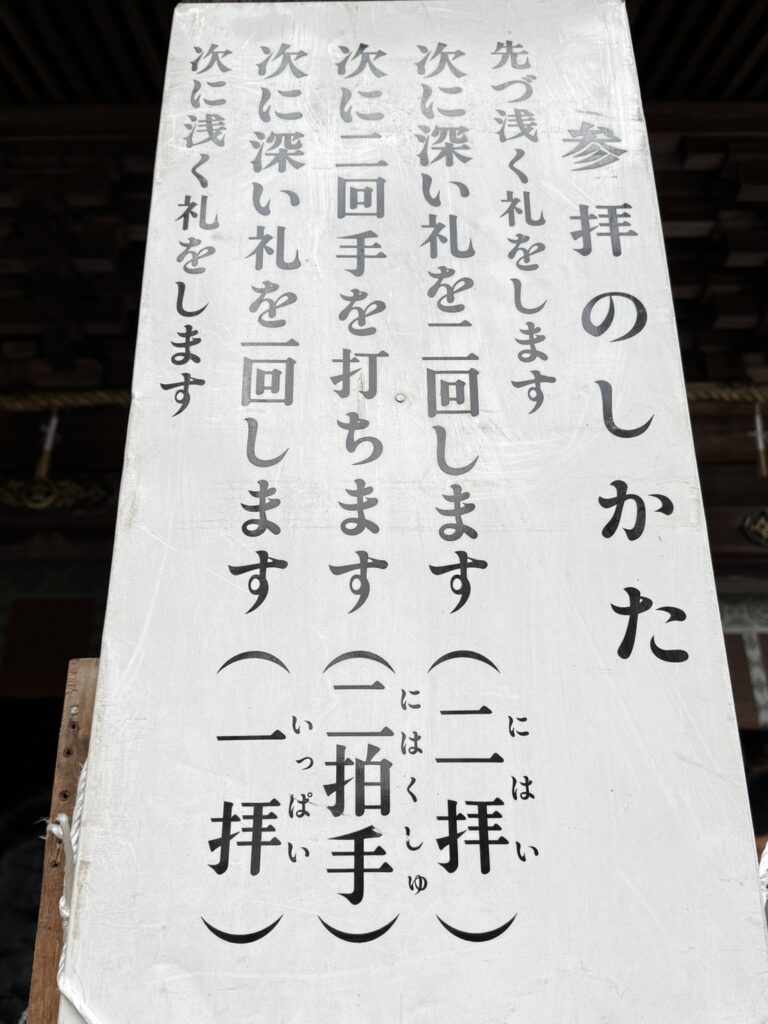 参拝のしかた
先づ浅く礼をします
次に深い礼を二回します(二拝)
にはい
次に二回手を打ちます(二拍手)
にはくしゅ
次に深い礼を一回します(一拝)
いっぱい
次に浅く礼をします